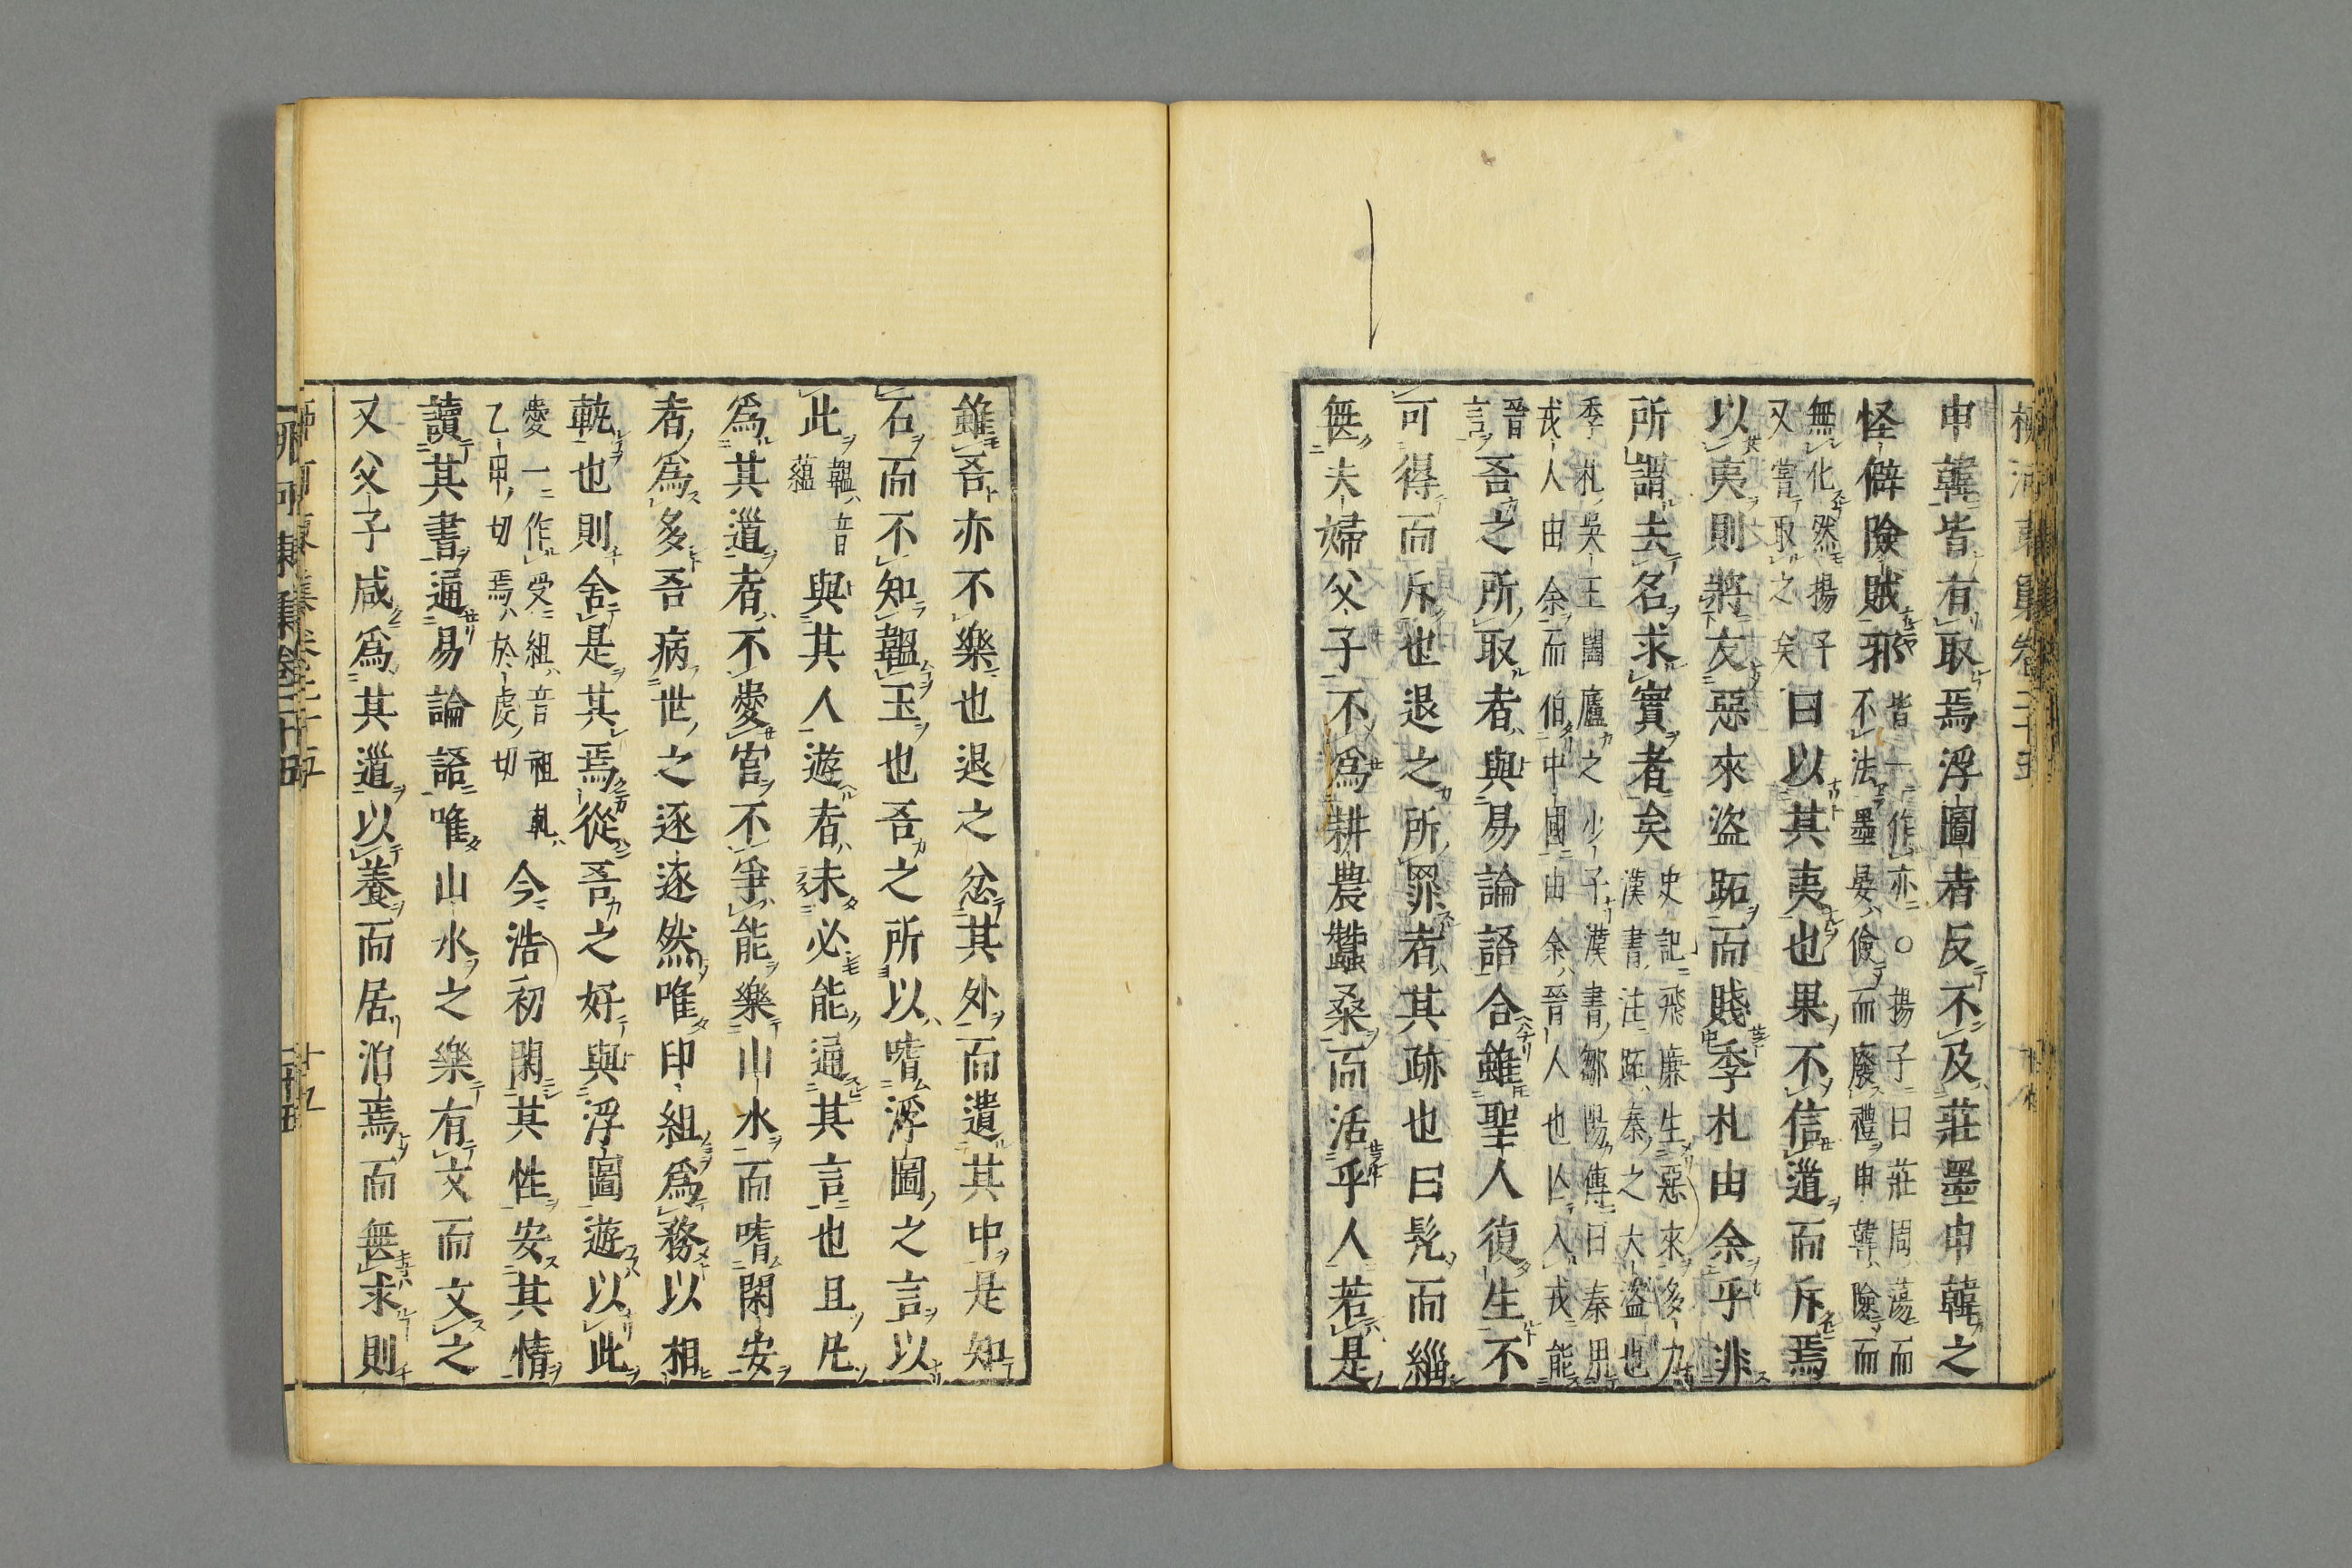 申韓皆有取焉浮圖者反不及莊墨申韓之
怪僻險賊邪皆一作亦○揚子曰莊周蕩而
不法墨晏儉而廢禮申韓險而
無化然揚子
又嘗取之矣曰以其夷也果不信道而斥焉
以夷則將友惡來盜跖而賤季札由余乎非
所謂去名求實者矣史記飛廉生惡來多力
漢書注跖秦之大盜也
季札吳王闔廬之少子漢書鄒陽傳曰秦用
戎人由余而伯中國由余晉人也亾入戎能
晉
言吾之所取者與易論語合雖聖人復生不
可得而斥也退之所罪者其跡也曰髡而緇
無夫婦父子不爲耕農蠶桑而活乎人若是
雖吾亦不樂也退之忿其外而遺其中是知
石而不知韞玉也吾之所以嗜浮圖之言以
此韞音
蘊與其人遊者未必能通其言也且凡
爲其道者不愛官不爭能樂山水而嗜閑安
者爲多吾病世之逐逐然唯印組爲務以相
軋也則舍是其焉從吾之好與浮圖遊以此
愛一作受組音祖軋
乙甲切焉於虔切今浩初閑其性安其情
讀其書通易論語唯山水之樂有文而文之
又父子咸爲其道以養而居泊焉而無求則